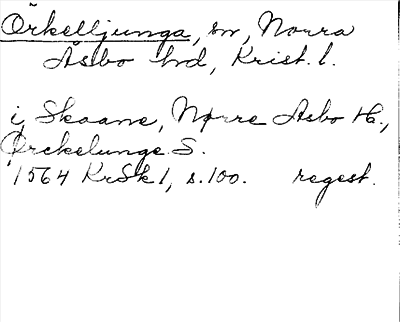 Örkelljunga, sn, Norra
Åsbo hd, Krist. l.
i Skaane, Nørre Asbo H.,
Ørckelunge S.
1564 KrSk 1, s. 100. regest.